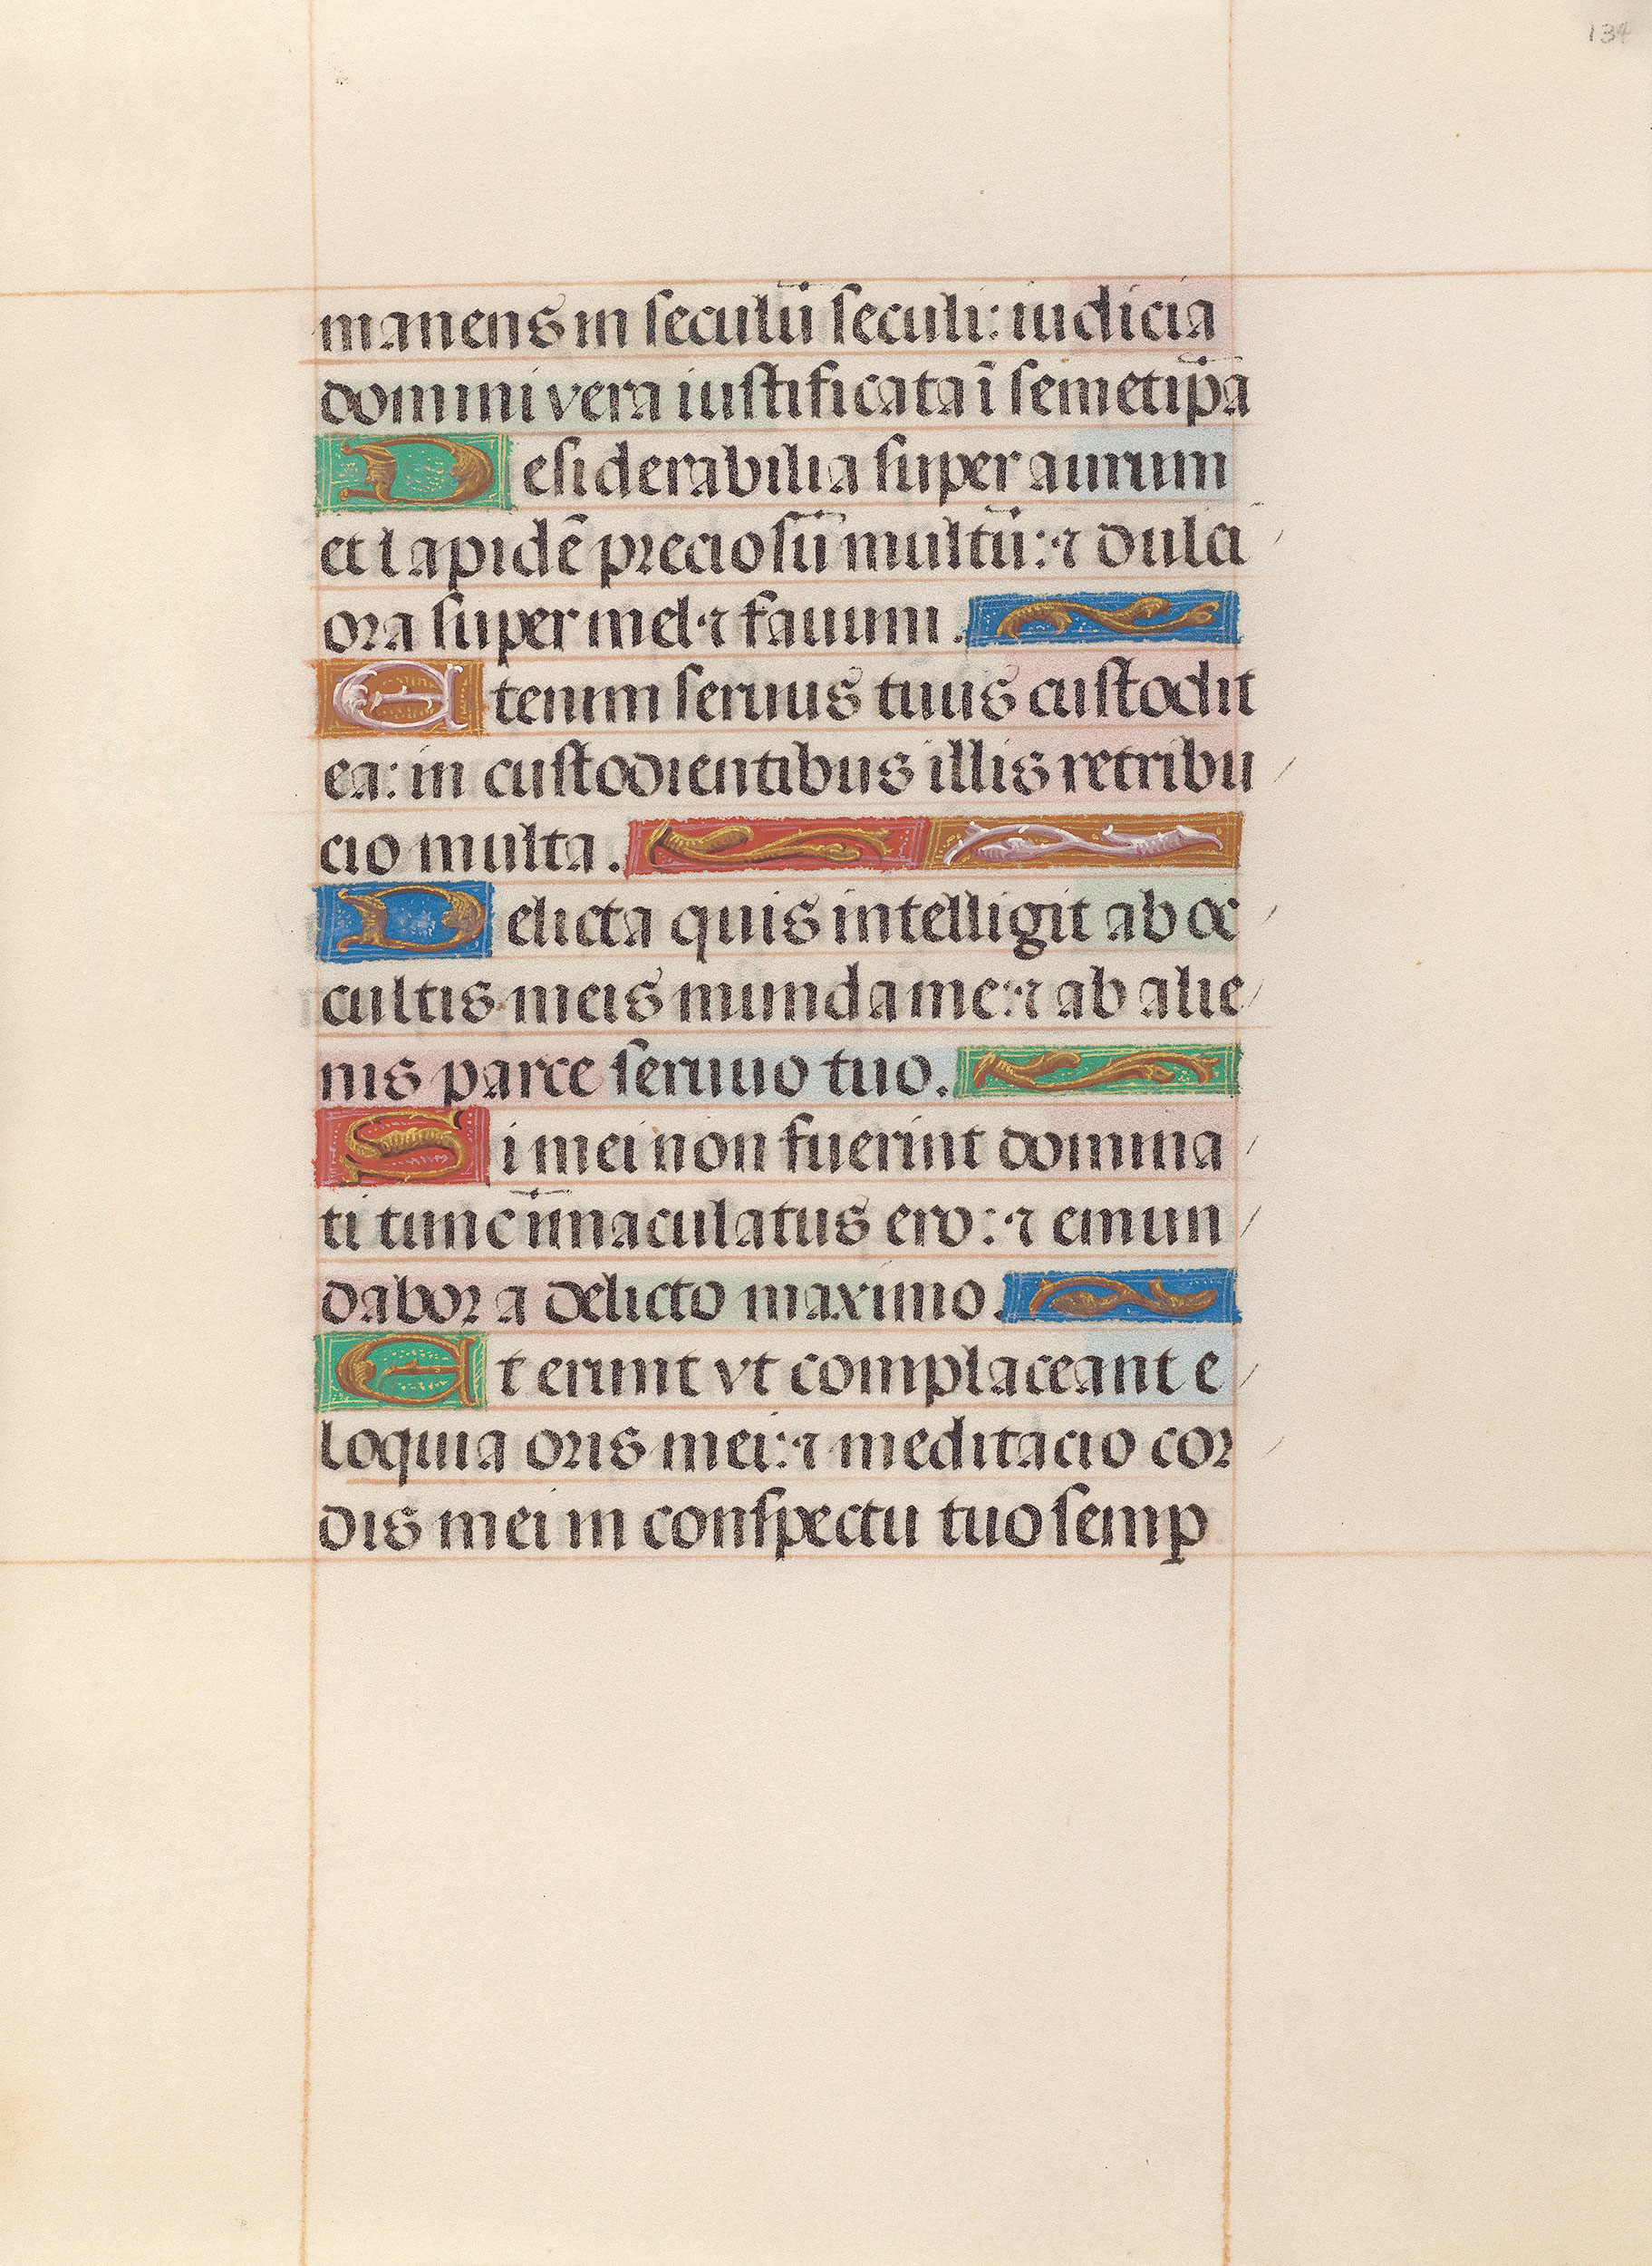 134
manens in seculū seculi: iudicia
domini vera iustificata ī semetip̄a
Desiderabilia super aurum
et lapidē preciosū multū: ⁊ dulci
ora super mel ⁊ fauum.
Etenim seruus tuus custodit
ea: in custodientibus illis retribu
cio multa.
Delicta quis intelligit ab oc
cultis meis munda me: ⁊ ab alie
nis parce seruuo tuo.
Si mei non fuerint domina
ti tunc īmaculatus ero: ⁊ emun
dabor a delicto maximo.
Et erunt vt complaceant e
loquia oris mei: ⁊ meditacio cor
dis mei in conspectu tuo semꝑ